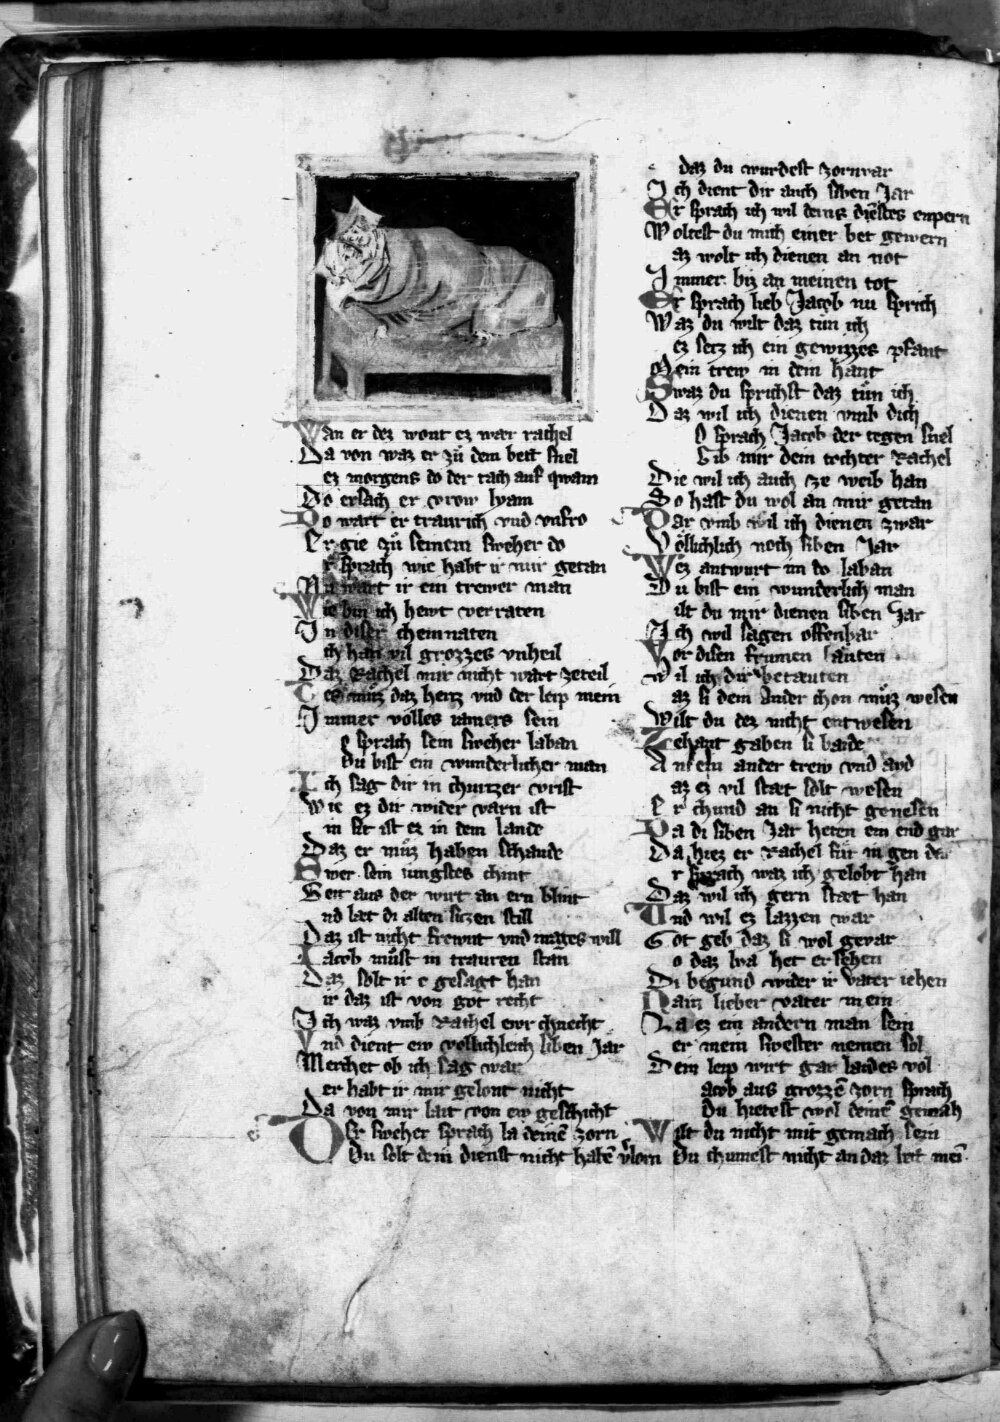 Wan er dez wont ez wær rachel
Da von waz er zů dem bett snel
ez morgens do der tach auf qwam
Do ersach er vrow lyam
Do wart er traurich vnd vnfro
Er gie zů seinem sweher do
r sprach wie habt ir mir getan
Nu wart ir ein trewer man
Wie bin ich hewt verraten
In diser chemnaten
ich han vil grozzes vnheil
Daz Rachel mir nicht wart zeteil
es můz daz hertz vnd der leip mein
Immer volles iamers sein
o sprach sein sweher laban
Du bist ein wunderlicher man
Ich sag dir in churtzer vrist
Wie ez dir wider varn ist
in sit ist ez in dem lande
Daz er můz haben schande
Swer sein iungstes chint
Geit aus der wirt an ern blint
nd læt di alten sitzen still
Daz ist nicht frewnt vnd mages will
Jacob můst in trauren stan
Daz solt ir e gesagt han
ir daz ist von got recht
Ich waz vmb Rachel ewr chnecht
Vnd dient ew vollichleich siben Jar
Merchet ob ich sag war
er habt ir mir gelont nicht
Da von mir lait von ew geschicht
Der sweher sprach la deinē zorn
Du solt dein dienst nicht habē v̓lorn
daz du wurdest zornvar
Ich dient dir auch siben Jar
Er sprach ich wil deins diēstes enpern
Woltest du mich einer bet gewern
az wolt ich dienen an not
Immer biz an meinen tot
Er sprach lieb Jacob nu sprich
Waz du wilt daz tůn ich
ez setz ich ein gewizzes pfant
Mein trew in dein hant
Swaz du sprichst daz tůn ich
Daz wil ich dienen vmb dich
O sprach Jacob der tegen snel
Gib mir dein tochter Rachel
Die wil ich auch ze weib han
So hast du wol an mir getan
Dar vmb wil ich dienen zwar
Völlichlich noch siben Jar
Wez antwurt im do laban
Du bist ein wunderlich man
ilt du mir dienen siben Jar
Ich wil sagen offenbar
Vor disen frumen lauten
wil ich dir betæuten
az si dein ander chon můz wesen
Wilt du dez nicht entwesen
Zehant gaben si baide
An ein ander trew vnd ayd
az ez vil stæt solt wesen
Er chund an si nicht genesen
Da di siben Jar heten ein end gar
Da hiez er Rachel für in gen dar
r sprach waz ich gelobt han
Daz wil ich gern stæt han
Und wil ez lazzen war
Got geb daz si wol gevar
o daz lya het ersehen
Di begund wider ir vater iehen
Nain lieber vater mein
La ez ein andern man sein
er mein swester nemen sol
Dein leip wirt gar laides vol
acob aus grozzē zorn sprach
Du hietest wol deinē gemach
Wilt du nicht mit gemach sein
Du chumest nicht an daz bet mein